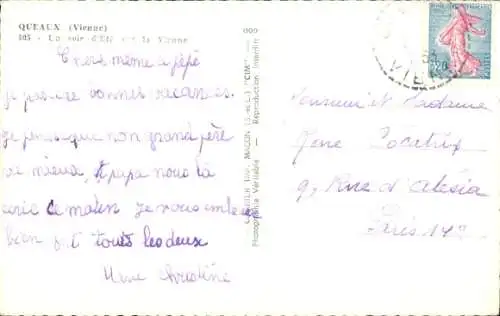 QUEAUX (Vienne)
105 - Un soir d'Été sur la Vienne
Chère mémé et pépé
je passe de bonnes vacances.
Je pense que mon grand père
va mieux, papa nous l'a
écrit ce matin je vous embrasse
bien fort tous les deux
Christine
COMBIER IMP. MACON (S.-et-L.) "CIM"
Photographie Véritable - Reproduction Interdite
Monsieur et Madame
René
9, Rue d'Alésia
Paris 14e
0,20